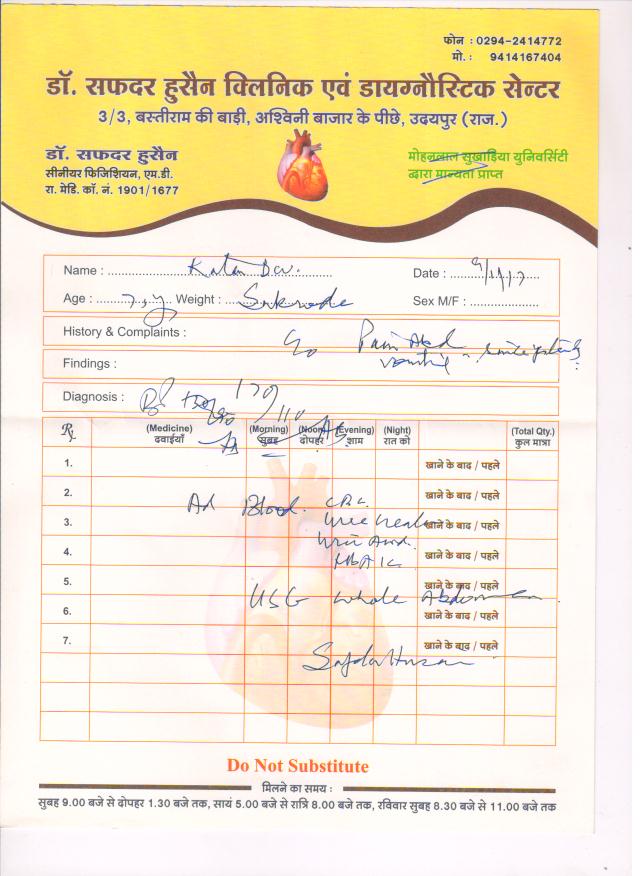 फोन : 0294-2414772
मो. : 9414167404
डॉ. सफदर हुसैन क्लिनिक एवं डायग्नौस्टिक सेन्टर
3/3, बस्तीराम की बाड़ी, अश्विनी बाजार के पीछे, उदयपुर (राज.)
डॉ. सफदर हुसैन
सीनीयर फिजिशियन, एम.डी.
रा. मेडि. कॉ. नं. 1901/1677
मोहनलाल सुखाडिया युनिवर्सिटी
द्वारा मान्यता प्राप्त
Name : Date :
Age : Weight : Sex M/F :
History & Complaints : Pain Abd
Findings :
Diagnosis : 170/110
Rx (Medicine) (Morning) (Noon) (Evening) (Night) (Total Qty.)
दवाईयाँ सुबह दोपहर शाम रात को कुल मात्रा
1. खाने के बाद / पहले
2. खाने के बाद / पहले
Ad Blood. CBC
3. खाने के बाद / पहले
4. खाने के बाद / पहले
HbA1c
5. खाने के बाद / पहले
USG whole Abdomen
6. खाने के बाद / पहले
7. खाने के बाद / पहले
Do Not Substitute
मिलने का समय :
सुबह 9.00 बजे से दोपहर 1.30 बजे तक, सायं 5.00 बजे से रात्रि 8.00 बजे तक, रविवार सुबह 8.30 बजे से 11.00 बजे तक